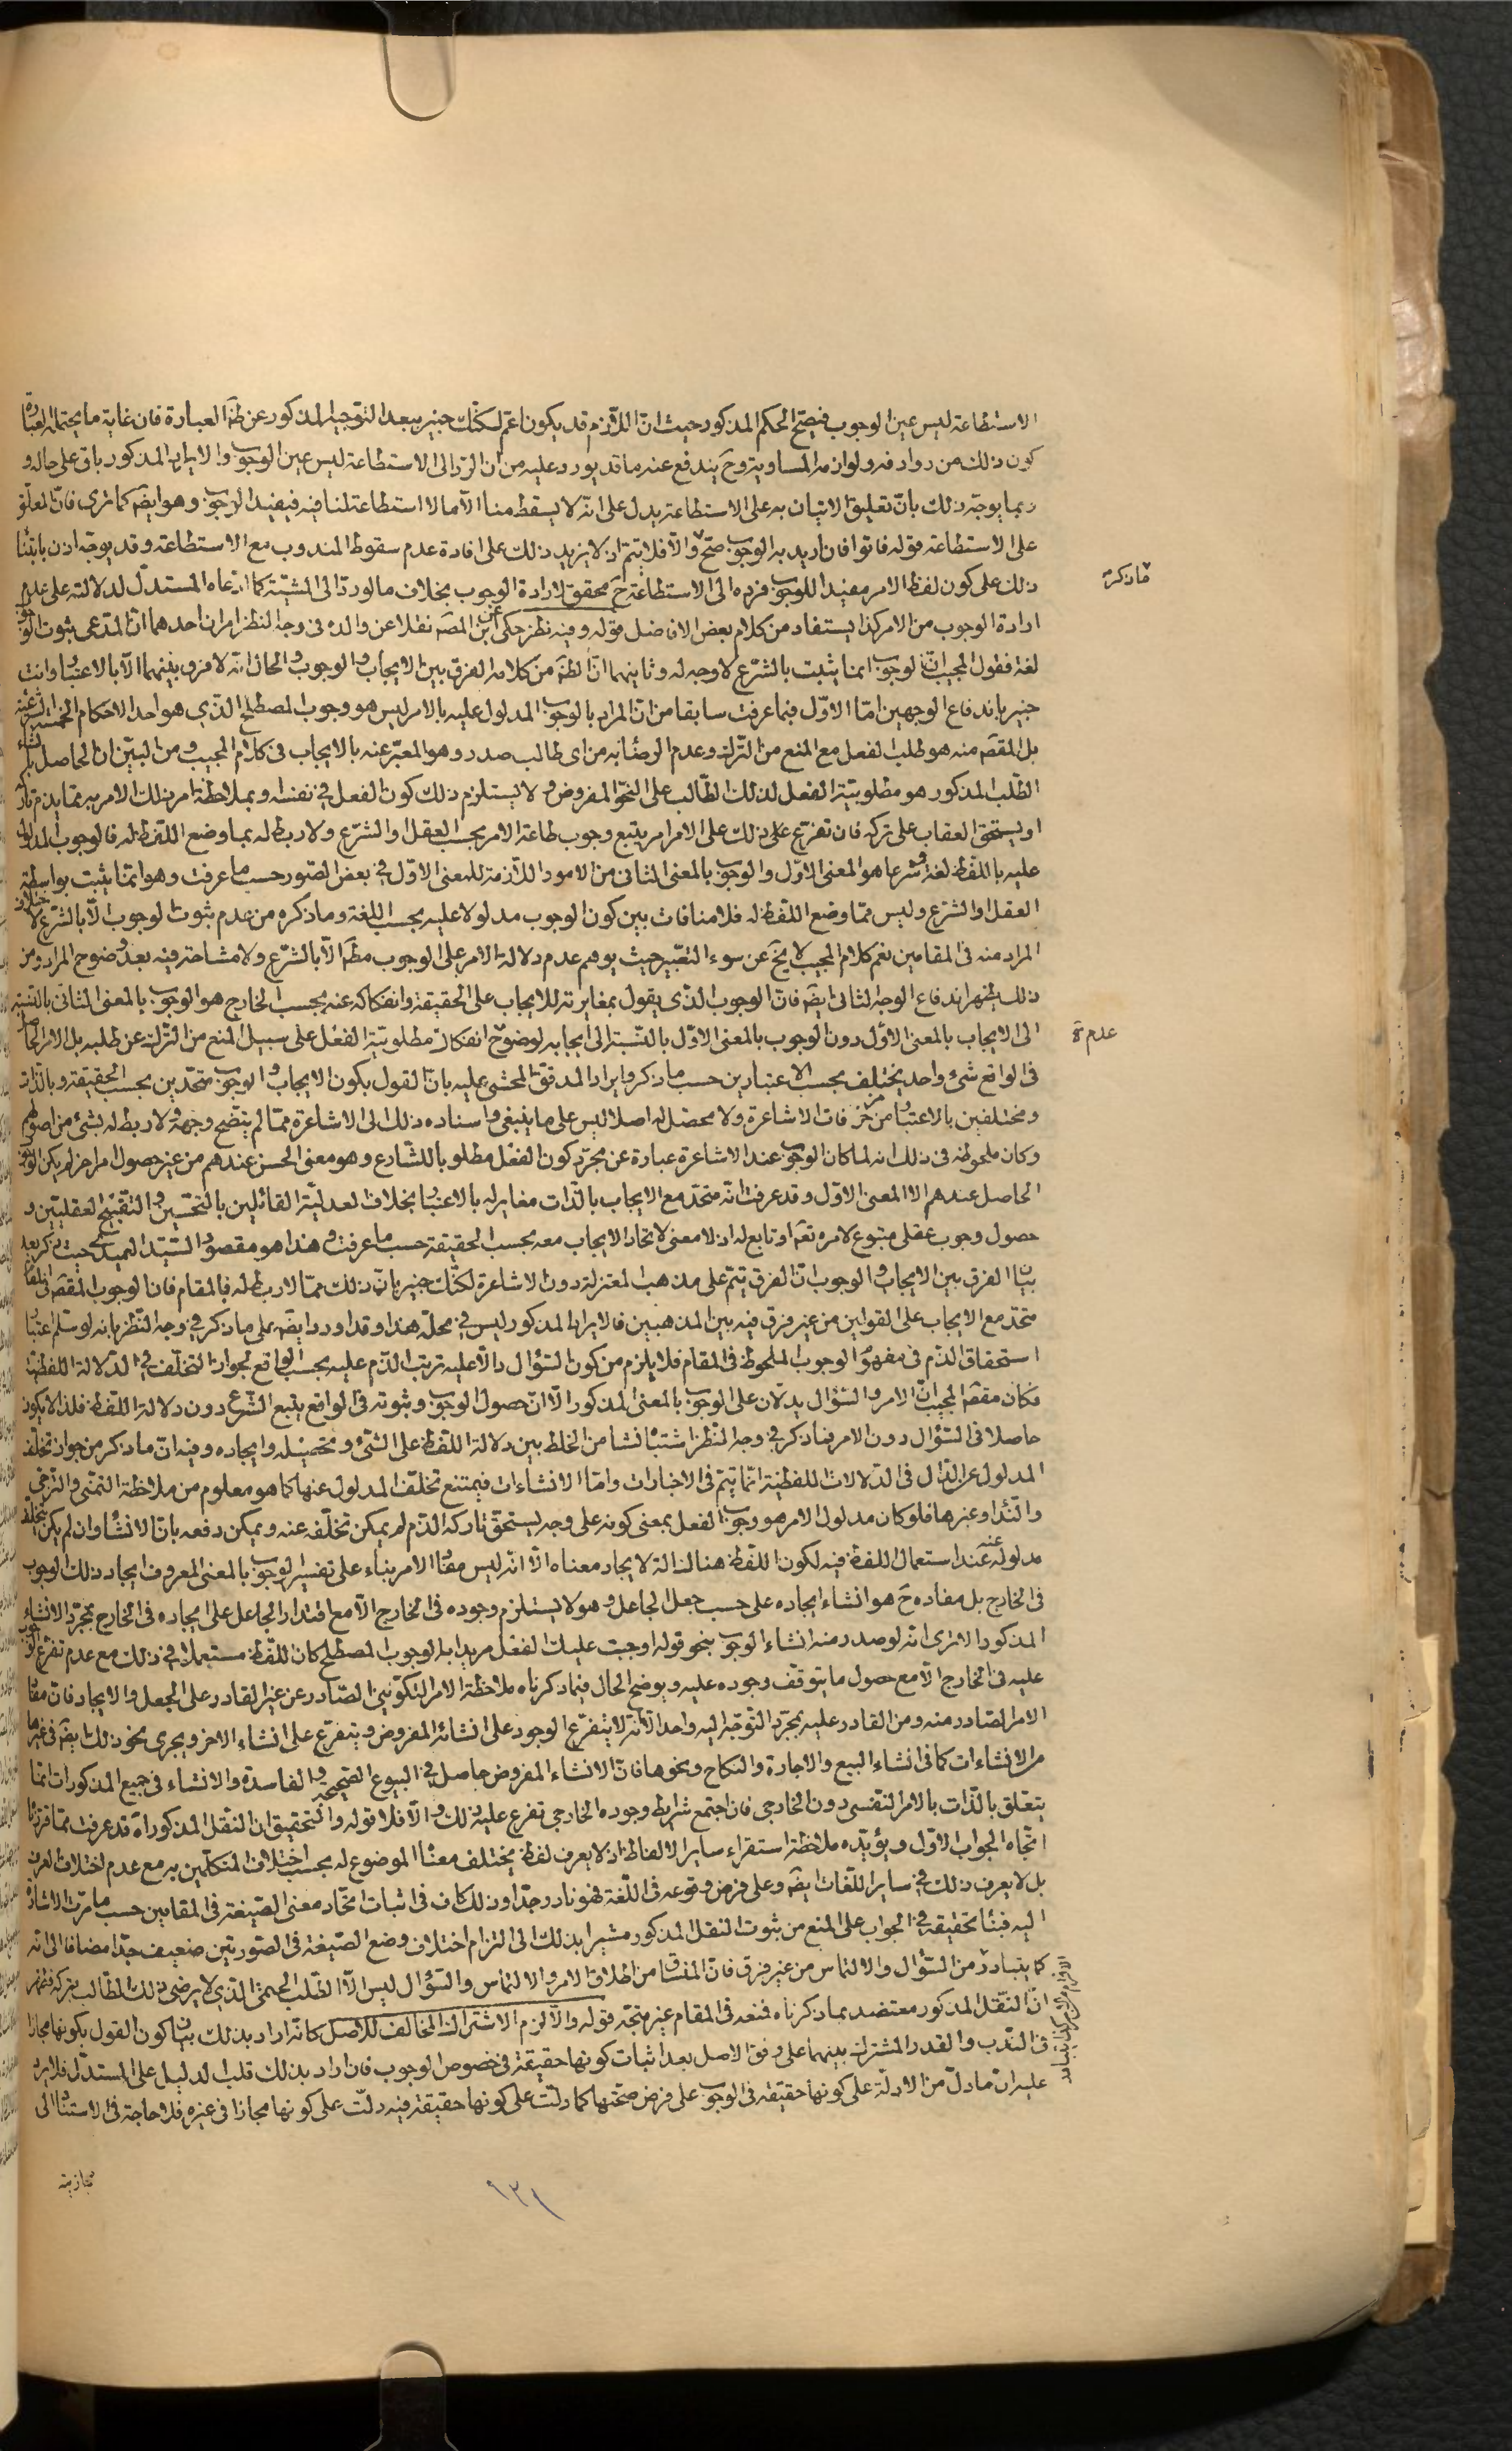 الاستطاعة ليس عين الوجوب فيصحّ الحكم المذكور حيث انّ اللازم قد يكون اعمّ لكنّك خبير ببعد التوجيه المذكور عن ظهَ العبارة فان غاية ما يحتمله العبارة
كون ذلك من روادفه ولوازمه المساوية وحَ يندفع عنه ما قد يورد عليه من ان الردّ الى الاستطاعة ليس عين الوجوب والايراد المذكور باق على حاله و
ربما يوجّه ذلك بانّ تعليق الاتيان به على الاستطاعة يدل على انّه لا يسقط منا الّا ما لا استطاعة لنا فيه فيفيد الوجوب وهو ايضَ كما ترى فانّ المعلّق
على الاستطاعة قوله فاتوا فان اريد به الوجوب صحّ والّا فلا يتمّ اذ لا يزيد ذلك على افادة عدم سقوط المندوب مع الاستطاعة وقد يوجّه اذن بابتناء
ذلك على كون لفظ الامر مفيدا للوجوب فردّه الى الاستطاعة حَ محقق لارادة الوجوب بخلاف ما لو ردّه الى المشيّة كما ادّعاه المستدلّ لدلالته على عدم
ارادة الوجوب من الامر كذا يستفاد من كلام بعض الافاضل قوله وفيه نظر حكى عن ابن المصَ نقلا عن والده في وجه النظر امران احدهما انّ المدّعى ثبوت الوجوب
لغة فقول المجيب انّ الوجوب انما يثبت بالشّرع لا وجه له وثانيهما انّ الظهَ من كلامه الفرق بين الايجاب والوجوب والحال انّه لا فرق بينهما الّا بالاعتبار وانت
خبير باندفاع الوجهين امّا الاوّل فبما عرفت سابقا من انّ المراد بالوجوب المدلول عليه بالامر ليس هو وجوب المصطلح الذي هو احد الاحكام الخمسة الشرعيّة
بل المقصَ منه هو طلب الفعل مع المنع من الترك وعدم الرضاء به من اى طالب صدر وهو المعبّر عنه بالايجاب فى كلام المجيب ومن البيّن ان الحاصل بانشاء
الطّلب المذكور هو مطلوبيّة الفعل لذلك الطّالب على النحو المفروض ولا يستلزم ذلك كون الفعل في نفسه وبملاحظة امر بذلك الامر به ممّا يذم تاركه
او يستحق العقاب على تركه فان تفرّع على ذلك على الامر امر يتبع وجوب طاعة الامر بحسب العقل او الشّرع ولا ربط له بما وضع اللفظ له فالوجوب المدلول
عليه باللّفظ لغة وشرعا هو المعنى الاوّل والوجوب بالمعنى الثانى من الامور اللّازمة للمعنى الاوّل في بعض الصّور حسب ما عرفت وهو انّما يثبت بواسطة
العقل او الشّرع وليس ممّا وضع اللّفظ له فلا منافات بين كون الوجوب مدلولا عليه بحسب اللغة وما ذكره من عدم ثبوت الوجوب الّا بالشّرع لاختلاف
المراد منه فى المقامين نعم كلام المجيب لا يخَ عن سوء التعبير حيث يوهم عدم دلالة الامر على الوجوب مطَ الّا بالشّرع ولا مشاحة فيه بعد وضوح المراد ومن
ذلك يظهر اندفاع الوجه الثانى ايضَ فانّ الوجوب الذي يقول بمغايرته للايجاب على الحقيقة وانفكاكه عنه بحسب الخارج هو الوجوب بالمعنى الثانى بالنسبة
الى الايجاب بالمعنى الاوّل دون الوجوب بالمعنى الاوّل بالنّسبة الى ايجابه لوضوح انفكاك مطلوبيّة الفعل على سبيل المنع من الترك عن طلبه بل الامر الحاصل
فى الواقع شىء واحد يختلف بحسب الاعتبارين حسب ما ذكر وايراد المدقق المحشى عليه بانّ القول بكون الايجاب والوجوب متحدين بحسب الحقيقة وبالذات
ومختلفين بالاعتبار من مزخرفات الاشاعرة ولا محصّل له اصلا ليس على ما ينبغى واسناده ذلك الى الاشاعرة ممّا لم يتضح وجهه ولا ربط له بشىء من اصولهم
وكان ملحوظه فى ذلك انه لما كان الوجوب عند الاشاعرة عبارة عن مجرّد كون الفعل مطلوبا للشّارع وهو معنى الحسن عندهم من غير حصول امر اخر لم يكن الوجوب
الحاصل عندهم الا المعنى الاوّل وقد عرفت انّه متحد مع الايجاب بالذّات مغاير له بالاعتبار بخلاف العدليّة القائلين بالتحسين والتقبيح العقليّين و
حصول وجوب عقلى متبوع لامره تعَ او تابع له اذ لا معنى لاتحاد الايجاب معه بحسب الحقيقة حسب ما عرفت وهذا هو مقصود السّيّد العميدى حيث ذكر بعد
بيان الفرق بين الايجاب والوجوب انّ الفرق يتمّ على مذهب المعتزلة دون الاشاعرة لكنّك خبير بانّ ذلك ممّا لا ربط له فى المقام فان الوجوب المقصَ فى المقام
متحد مع الايجاب على القولين من غير فرق فيه بين المذهبين فالايراد المذكور ليس في محلّه هذا وقد اورد ايضَ على ما ذكر في وجه النّظر بانه لو سلم اعتبار
استحقاق الذم فى مفهوم الوجوب الملحوظ فى المقام فلا يلزم من كون السّؤال دالّا عليه ترتب الذّم عليه بحسب الواقع لجواز التخلّف في الدّلالة اللفظيّة
فكان مقصَ المجيب انّ الامر والسّؤال يدلّان على الوجوب بالمعنى المذكور الّا انّ حصول الوجوب وثبوته فى الواقع يتبع الشّرع دون دلالة اللّفظ فلذا لا يكون
حاصلا فى السّؤال دون الامر فما ذكر في وجه النّظر اشتباه نشأ من الخلط بين دلالة اللّفظ على الشّىء وتحصيله وايجاده وفيه انّ ما ذكر من جواز تخلّف
المدلول عن الدّال فى الدّلالات اللفظيّة انّما يتمّ فى الاخبارات وامّا الانشاءات فيمتنع تخلّف المدلول عنها كما هو معلوم من ملاحظة التّمنى والترجى
والنّداء وغيرها فلو كان مدلول الامر هو وجوب الفعل بمعنى كونه على وجه يستحقّ تاركه الذّم لم يمكن تخلّفه عنه ويمكن دفعه بانّ الانشاء وان لم يكن يتخلّف
مدلوله عنه عند استعمال اللفظ فيه لكون اللّفظ هناك الة لايجاد معناه الّا انّه ليس مفاد الامر بناء على تفسير الوجوب بالمعنى المعروف ايجاد ذلك الوجوب
فى الخارج بل مفاده حَ هو انشاء ايجاده على حسب جعل الجاعل وهو لا يستلزم وجوده فى الخارج الّا مع اقتدار الجاعل على ايجاده فى الخارج بمجرّد الانشاء
المذكور الا ترى انّه لو صدر منه انشاء الوجوب بنحو قوله اوجبت عليك الفعل مريدا به الوجوب المصطلح كان اللّفظ مستعملا في ذلك مع عدم تفرّع الوجوب
عليه فى الخارج الّا مع حصول ما يتوقّف وجوده عليه ويوضح الحال فيما ذكرناه ملاحظة الامر التكوينى الصّادر عن غير القادر على الجعل والايجاد فانّ مفاد
الامر الصّادر منه ومن القادر عليه بمجرّد التّوجّه اليه واحد الّا انّه لا يتفرّع الوجود على انشائه المفروض ويتفرّع على انشاء الاخر ويجرى نحو ذلك ايضَ فى غيرها
من الانشاءات كما فى انشاء البيع والاجارة والنكاح ونحوها فانّ الانشاء المفروض حاصل في البيوع الصّحيحة والفاسدة والانشاء فى جميع المذكورات انّما
يتعلّق بالذّات بالامر النّفسى دون الخارجى فان اجتمع شرايط وجوده الخارجى تفرع عليه ذلك والّا فلا قوله والتّحقيق ان النّقل المذكور اه قد عرفت ممّا قررنا
اتّجاه الجواب الاوّل ويؤيّده ملاحظة استقراء ساير الالفاظ اذ لا يعرف لفظ يختلف معناه الموضوع له بحسب اختلاف المتكلّمين به مع عدم اختلاف العرف
بل لا يعرف ذلك في ساير اللّغات ايضَ وعلى فرض وقوعه فى اللّغة فهو نادر جدّا وذلك كاف فى اثبات اتّحاد معنى الصّيغة فى المقامين حسب ما مرّت الاشارة
اليه فبناء تحقيقه في الجواب على المنع من ثبوت النّقل المذكور مشيرا بذلك الى التزام اختلاف وضع الصّيغة فى الصّورتين ضعيف جدّا مضافا الى انّه
كما يتبادر من السّؤال والالتماس من غير فرق فانّ المنساق من اطلاق الامر والالتماس والسّؤال ليس الّا الطّلب الحتمى الذي لا يرضى ذلك الطّالب بتركه
انّ النّقل المذكور معتضد بما ذكرناه فمنعه فى المقام غير متجّه قوله والّا لزم الاشتراك المخالف للاصل كانّه اراد بذلك بيان كون القول بكونها مجازا
فى النّدب والقدر المشترك بينهما على وفق الاصل بعد اثبات كونها حقيقة فى خصوص الوجوب فان اراد بذلك قلب الدليل على المستدلّ فلا يرد
عليه انّ ما دلّ من الادلّة على كونها حقيقة فى الوجوب على فرض صحّتها كما دلّت على كونها حقيقة فيه دلّت على كونها مجازا فى غيره فلا حاجة فى الاستناد الى
مجازيته
فاذكره
عدم
١٢١